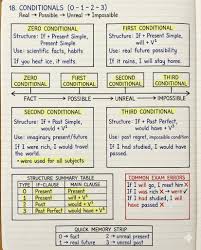 18. CONDITIONALS (0 - 1 - 2 - 3)
Real → Possible → Unreal → Impossible
ZERO CONDITIONAL
Structure: If + Present Simple, Present Simple
Use: scientific facts, habits
If you heat ice, it melts.
FIRST CONDITIONAL
Structure: If + Present Simple, will + V¹
Use: real future possibility
If it rains, I will stay home.
ZERO CONDITIONAL
FIRST CONDITIONAL
SECOND CONDITIONAL
THIRD CONDITIONAL
FACT → POSSIBLE → UNREAL → IMPOSSIBLE
SECOND CONDITIONAL
Structure: If + Past Simple, would + V¹
Use: imaginary present/future
If I were rich, I would travel the world.
• were used for all subjects
THIRD CONDITIONAL
Structure: If + Past Perfect, would have + V³
Use: past regret, impossible condition
If I had studied, I would have passed.
STRUCTURE SUMMARY TABLE
TYPE IF-CLAUSE MAIN CLAUSE
0 Present Present
1 Present will + V¹
2 Past would + V¹
3 Past Perfect would have + V³
COMMON EXAM ERRORS
If I will go, I will him ✗
If I was rich ✗ → were ✓
If I had studied, I will have passed ✗
QUICK MEMORY STRIP
0 → fact
1 → real future
2 → unreal present
3 → unreal past